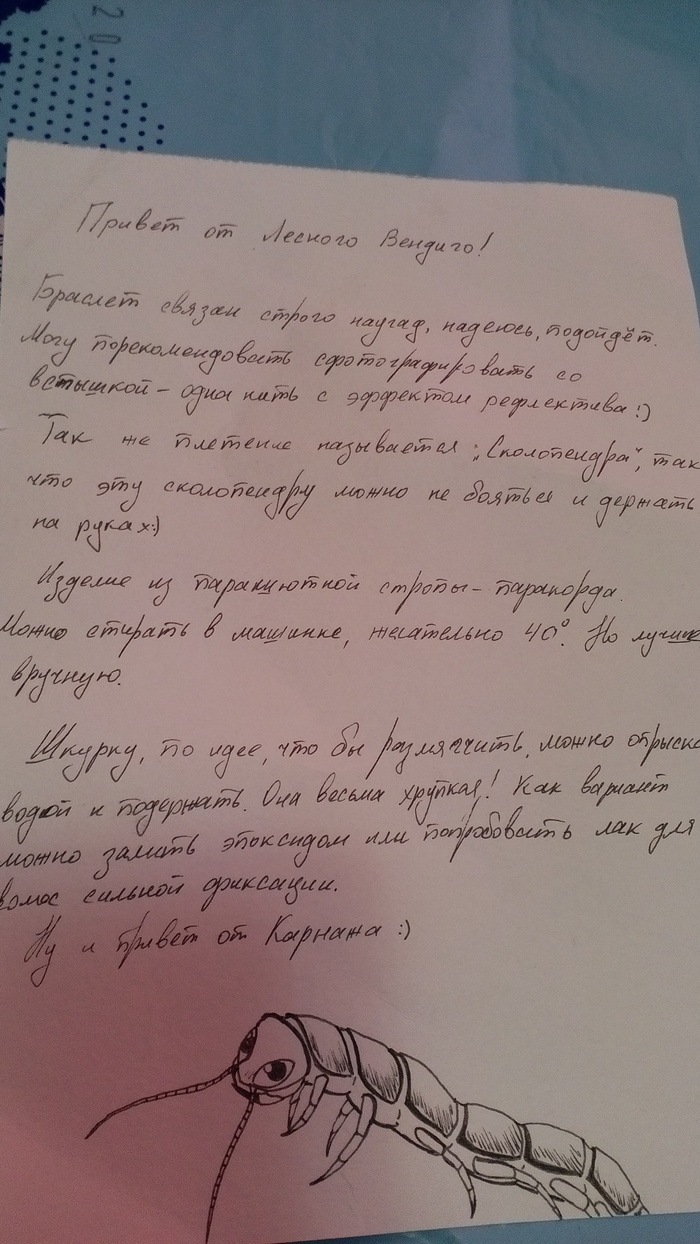 20
Привет от Лесного Вендиго!
Браслет связан строго наугад, надеюсь, подойдёт.
Могу порекомендовать сфотографировать со
вспышкой - одна нить с эффектом рефлектива :)
Так же плетение называется „Сколопендра", так
что эту сколопендру можно не бояться и держать
на руках :)
Изделие из паракцютной стропы - паракорда.
Можно стирать в машинке, желательно 40°. Но лучше
вручную.
Шкурку, по идее, что бы размягчить, можно опрыска
водой и подержать. Она весьма хрупкая! Как вариант
можно залить эпоксидом или попробовать лак для
волос сильной фиксации.
Ну и привет от Карнажа :)